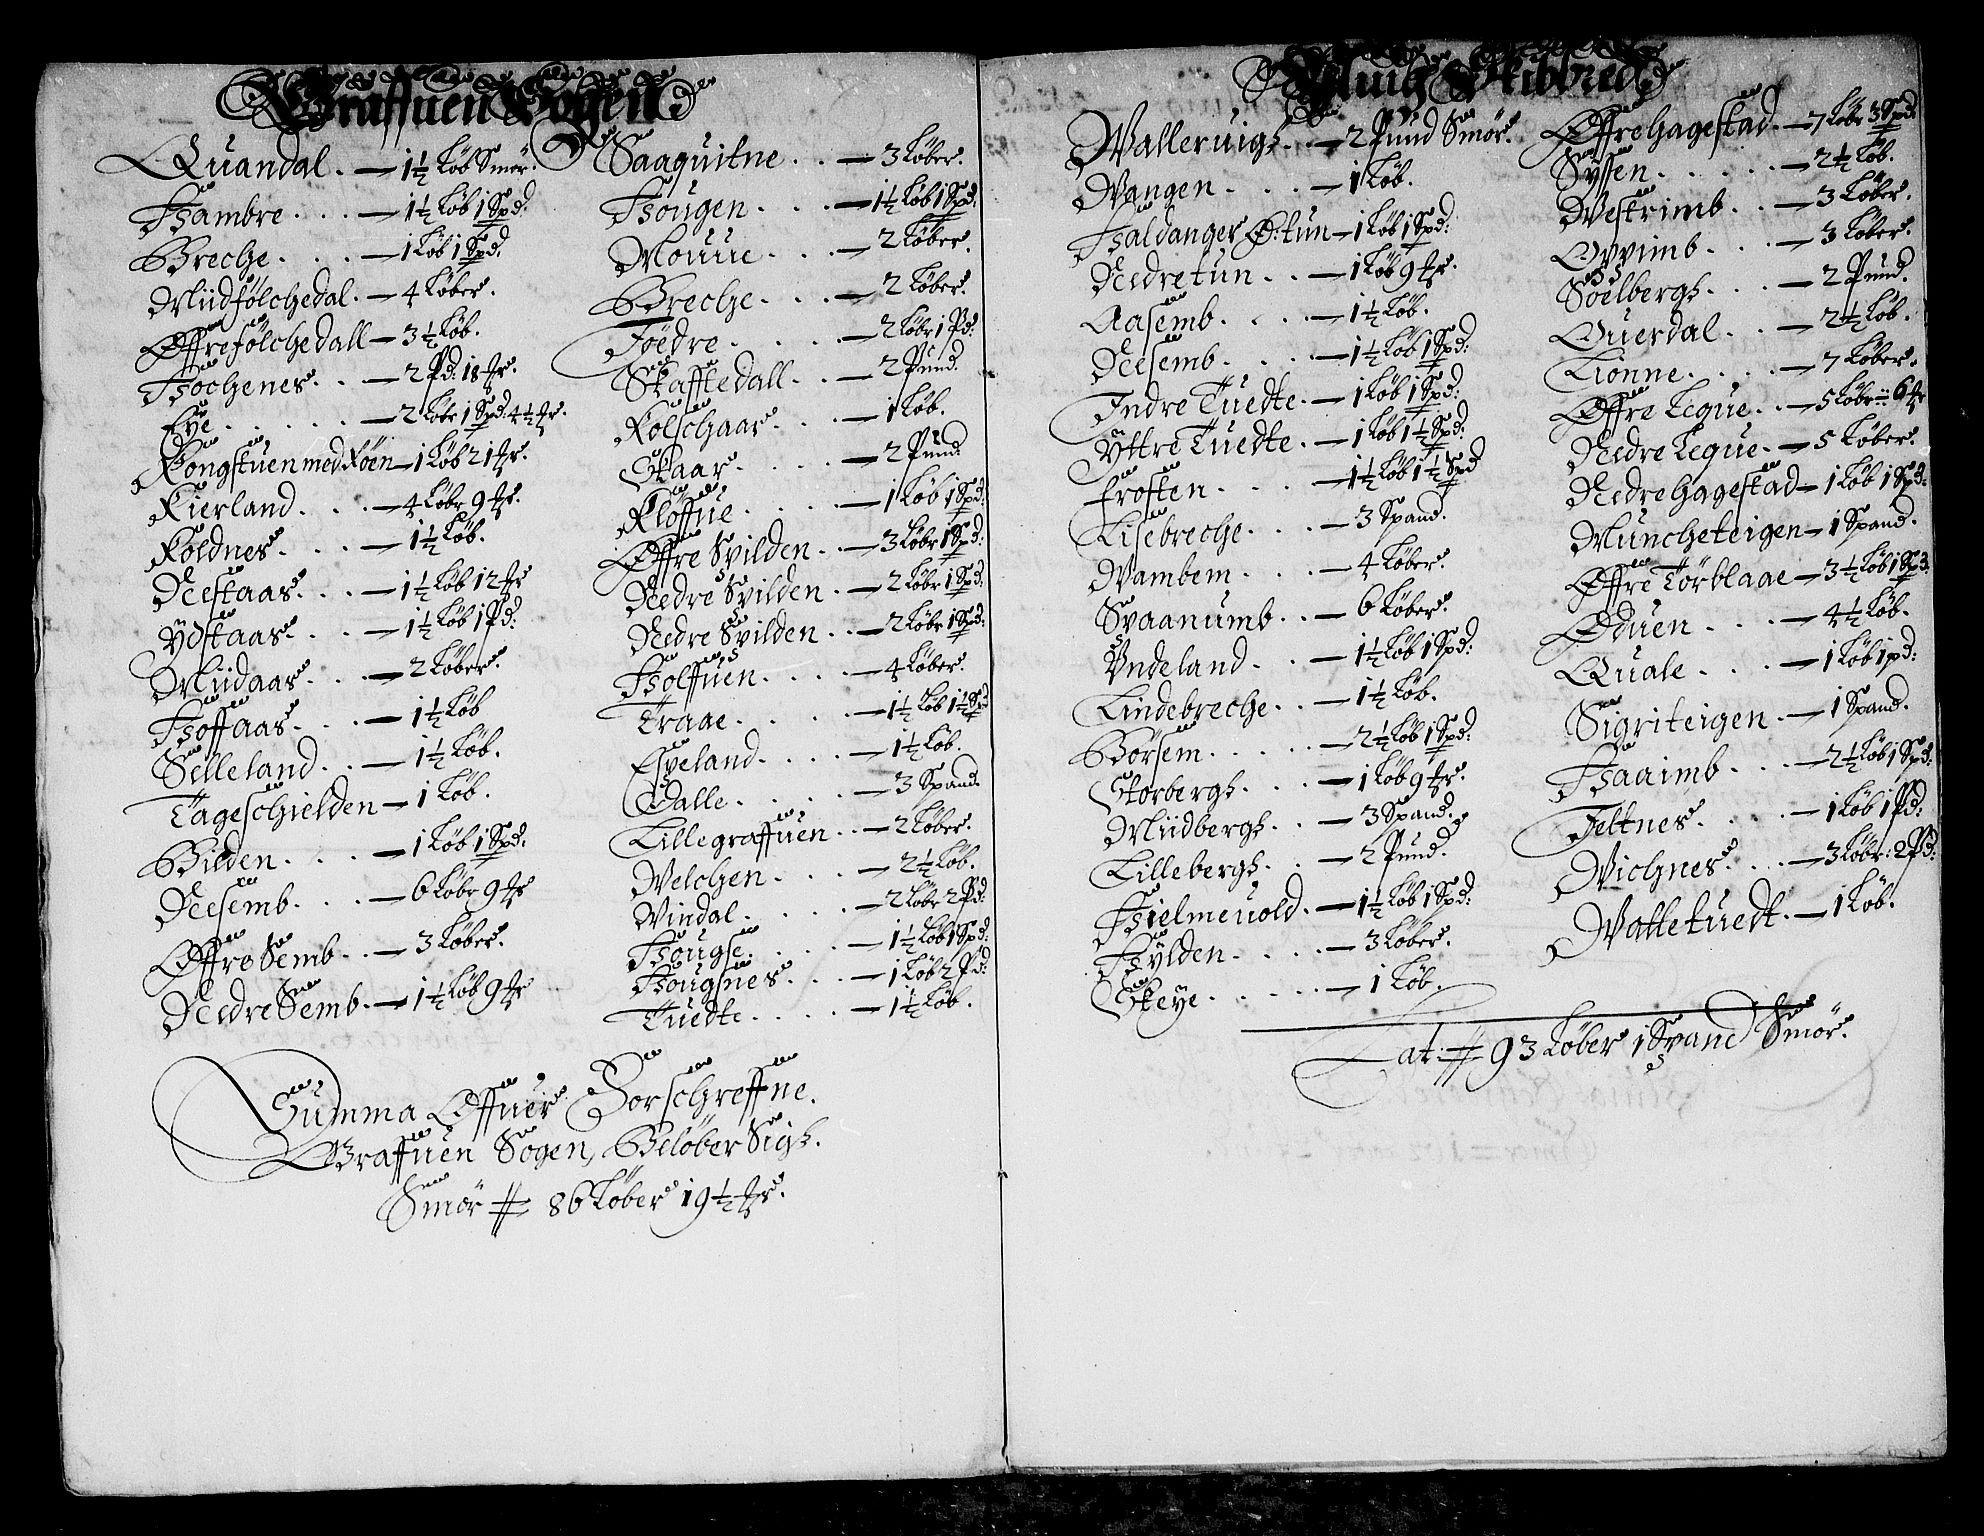 Graffuen Sogen
Quandal. — 1½ Løb Smør.
Hambre. . . . — 1½ Løb 1 Spd:
Breche. . . . — 1 Løb 1 Spd:
Midfølchedal. — 4 Løber.
Øffrefølchedall — 3½ Løb.
Hochenes. . . — 2 Pd: 18 mr.
Eye. . . . . . — 2 Løbr 1 Spd: 4½ mr.
Kongstuen med Røen — 1 Løb 21 mr.
Kierland. . . . — 4 Løbr 9 mr.
Koldnes. . . . — 1½ Løb.
Neestaas. . . . — 1½ Løb 12 mr
Ydstaas. . . . — 1½ Løb 1 Pd:
Midaas. . . . — 2 Løber.
Hoffaas. . . . — 1½ Løb
Selleland. . . — 1½ Løb.
Tageschielden — 1 Løb.
Bilden. . . . — 1 Løb 1 Spd:
Neesemb. . . . — 6 Løbr 9 mr
Øffre Semb. . . — 3 Løber.
Nedre Semb. — 1½ Løb 9 mr
Saaquitne. . . — 3 Løber.
Hougen. . . . — 1½ Løb 1 Spd:
Mouue. . . . — 2 Løber.
Breche. . . . — 2 Løber.
Føedre. . . . . — 2 Løbr 1 Pd:
Skafftedall. . . — 2 Pund.
Kolschaar. . . . — 1 Løb.
Skaar. . . . — 2 Pund.
Kløffue. . . . . — 1 Løb 1 Spd:
Øffre Spilden. . — 3 Løbr 1 Spd:
Nedre Spilden. . — 2 Løbr 1 Spd:
Nedre Spilden. . — 2 Løbr 1 Spd:
Holffuen. . . . . — 4 Løber.
Traae. . . . . — 1½ Løb 1½ Spd
Espeland. . . . — 1½ Løb.
Dalle. . . . . — 3 Spand.
Lillegraffuen. . — 2 Løber.
Velchen. . . . — 2½ Løb.
Vindal. . . . . — 2 Løbr 2 Pd:
Hougse. . . . . — 1½ Løb 1 Spd:
Hougsnes. . . . — 1 Løb 2 Pd:
Tuedte. . . . . — 1½ Løb.
Summa Offuer Forschreffne.
Graffuen Sogen, Beløber Sigh.
Smør # 86 Løber 19½ mr.
Vluigh Skibbred
Valleruigh. . . — 2 Pund Smør.
Vangen. . . . — 1 Løb.
Haldanger Ø: tun — 1 Løb 1 Spd:
Nedretun. . . — 1 Løb 9 mr.
Aasemb. . . . — 1½ Løb.
Neesemb. . . . . — 1½ Løb 1 Spd:
Indre Tuedte. — 1 Løb 1 Spd:
Yttre Tuedte. — 1 Løb 1½ Spd:
Frosten. . . . — 1½ Løb 1½ Spd
Lisebreche. . . . — 3 Spand.
Vambem. . . . — 4 Løber.
Svaanumb. . . — 6 Løber.
Vndeland. . . — 1½ Løb 1 Spd:
Lindebreche. . . — 1½ Løb.
Børsem. . . . . — 2½ Løb 1 Spd:
Storbergh. . . . — 1 Løb 9 mr.
Midbergh. . . — 3 Spand.
Lillebergh. . . — 2 Pund.
Hielmeuold. — 1½ Løb 1 Spd:
Hylden. . . . . — 3 Løber.
Skeye. . . . . — 1 Løb.
Øffre Hagestad. — 7 Løbr 3 Spd:
Syssen. . . . . . — 2½ Løb.
Vestrimb. . . — 3 Løber.
Opimb. . . . — 3 Løber.
Soelbergh. . . . — 2 Pund.
Ouerdal. . . . — 2½ Løb.
Lionne. . . . . — 7 Løber.
Øffre Leque. . . — 5 Løbr: 6 mr
Nedre Leque. — 5 Løber.
Nedre Hagestad — 1 Løb 1 Spd:
Muncheteigen — 1 Spand.
Øffre Torblaae — 3½ Løb 1 Spd:
Øduen. . . . — 4½ Løb.
Quale. . . . — 1 Løb 1 pd:
Sigriteigen. — 1 Spand.
Haaimb. . . . — 2½ Løb 1 Spd:
Feltnes. . . . . — 1 Løb 1 Pd:
Vichnes. . . . — 3 Løbr: 2 Pd:
Valletuedt. — 1 Løb.
Lat: # 93 Løber 1 Spand Smør.